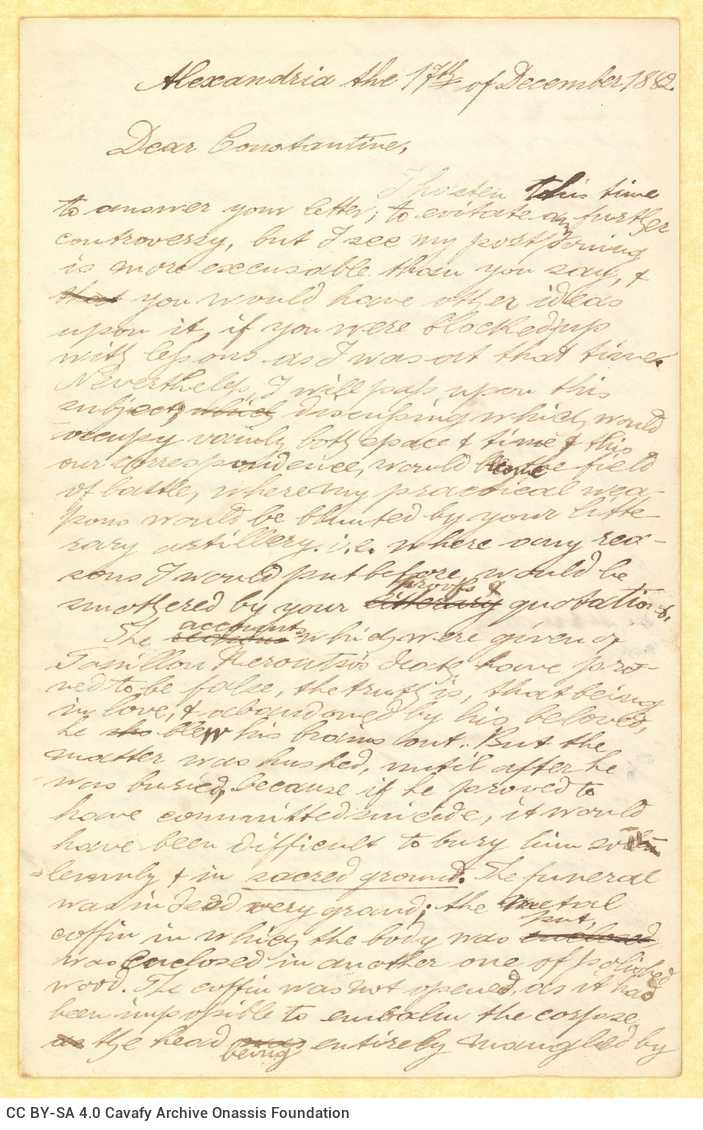 Alexandria the 17th of December, 1882.
Dear Constantine,
I hasten this time
to answer your letter, to evitate any further
controversy, but I see my postponing
is more excusable than you say, &
that you would have other ideas
upon it, if you were blocked up
with lessons as I was at that time.
Nevertheless, I will pass upon this
subject, which discussing which, would
occupy vainly both space & time & this
our correspondence, would become the field
of battle, where my practical wea-
pons would be blunted by your litte-
rary artillery. i.e. where any rea-
sons I would put before, would be
proofs &
smothered by your litterary quotations.
accounts
The which were given of
Tamillon death have pro-
ved to be false, the truth is, that being
in love, & abandoned by his beloved,
he sho blew his brains out. But the
matter was hushed, until after he
was buried, because if he proved to
have committed suicide, it would
have been difficult to bury him so
lemnly & in sacred ground. The funeral
was indeed very grand; the metal
put,
coffin in which the body was enclosed
was enclosed in another one of polished
wood. The coffin was not opened, as it had
been impossible to embalm the corpse,
as the head was entirely mangled by
being
CC BY-SA 4.0 Cavafy Archive Onassis Foundation